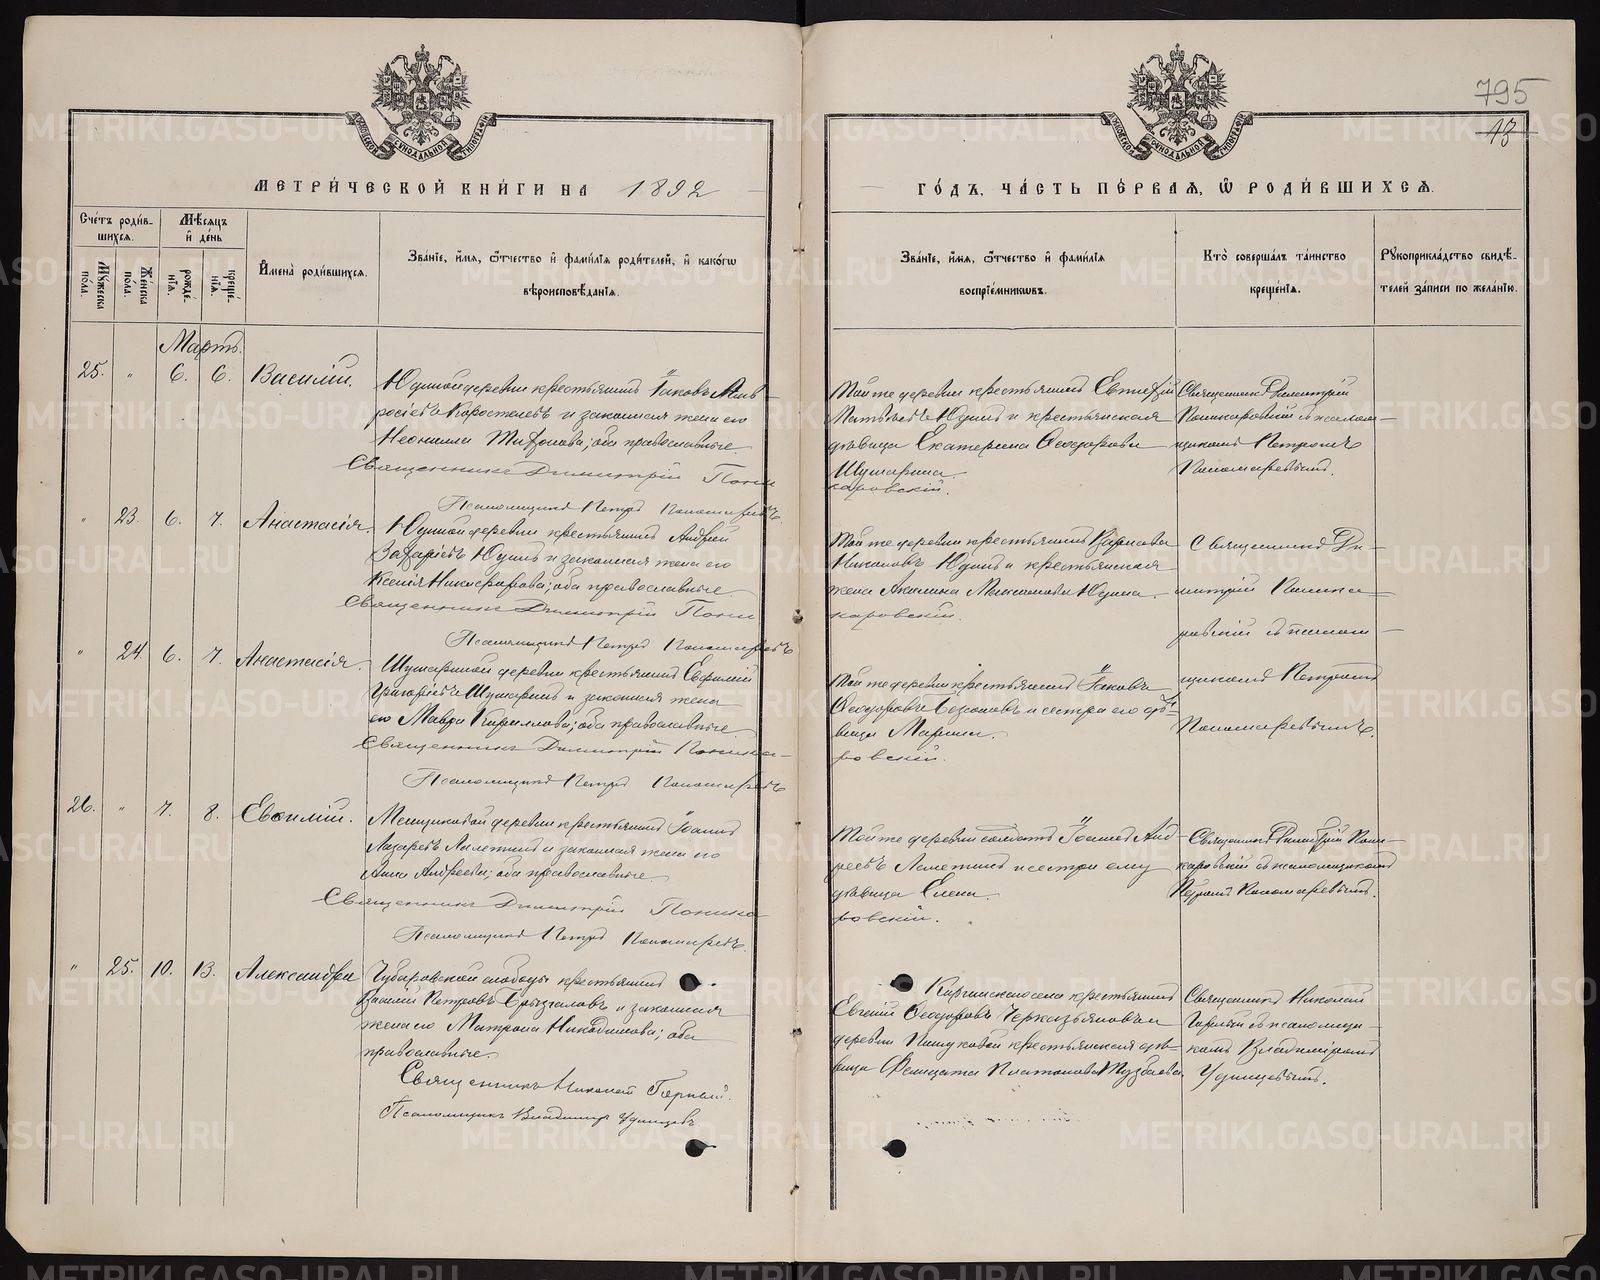 795
13
МЕТРИ́ЧЕСКОЙ КНИ́ГИ НА 1892
ГО́ДЪ, ЧА́СТЬ ПЕ́РВАЯ, Ѿ РОДИ́ВШИХСѦ.
Сче́тъ роди́в-
шихсѧ.
Мѣ́сѧцъ
и҆ де́нь
И҆мена̀ роди́вшихсѧ.
Зва́нїе, и҆́мѧ, ѻ҆́тчество и҆ фами́лїѧ роди́телей, и҆ како́гѡ
вѣроисповѣ́данїѧ.
Мꙋ́жеска
по́ла.
Же́нска
по́ла.
рожде́-
нїѧ.
креще́-
нїѧ.
Зва́нїе, и҆́мѧ, ѻ҆́тчество и҆ фами́лїѧ
воспрїе́мникѡвъ.
Кто̀ соверша́лъ та́инство
креще́нїѧ.
Рꙋкоприкла́дство свидѣ́-
телей за́писи по жела́нїю.
Мартъ.
25. " 6. 6. Василій.
Юдиной деревни крестьянинъ Іаковъ Амв-
росіевъ Коростелевъ и законная жена его
Неонилла Тифонова; оба православные.
Священникъ Димитрій Поли
каровскій.
Псаломщикъ Петръ Пономаревъ
Той же деревни крестьянинъ Евтихій
Матвѣевъ Юдинъ и крестьянская
дѣвица Екатерина Ѳеодорова
Шушарина.
Священникъ Димитрій
Поликаровскій съ псалом-
щикомъ Петромъ
Пономаревымъ.
" 23. 6. 7. Анастасія.
Юдиной деревни крестьянинъ Андрей
Захаріевъ Юдинъ и законная жена его
Ксенія Никифорова; оба православные.
Священникъ Димитрій Поли
каровскій.
Псаломщикъ Петръ Пономаревъ
Той же деревни крестьянинъ
Николаевъ Юдинъ и крестьянская
жена Акилина Максимова Юдина.
Священникъ Ди-
митрій Полика-
ровскій съ псалом-
щикомъ Петромъ
Пономаревымъ.
" 24. 6. 7. Анастасія.
Шушариной деревни крестьянинъ Евфимій
Григоріевъ Шушаринъ и законная жена
его Мавра Кириллова; оба православные.
Священникъ Димитрій Полика-
ровскій.
Псаломщикъ Петръ Пономаревъ
Той же деревни крестьянинъ Іаковъ
Ѳеодоровъ Созоновъ и сестра его дѣ-
вица Марина.
26. " 7. 8. Евѳимій.
Менщиковой деревни крестьянинъ Іоаннъ
Лазаревъ Лалетинъ и законная жена его
Анна Андреева; оба православные.
Священникъ Димитрій Полика
ровскій.
Псаломщикъ Петръ Пономаревъ.
Той же деревни солдатъ Іоаннъ Анд-
реевъ Лалетинъ и сестра ему
дѣвица Елена.
Священникъ Димитрій Поли-
каровскій съ псаломщикомъ
Петромъ Пономаревымъ.
" 25. 10. 13. Александра
Чубаровской слободы крестьянинъ
Василій Петровъ Брызгаловъ и законная
жена его Матрона Никодимова; оба
православные.
Священникъ Николай Горный.
Псаломщикъ Владимиръ Удинцевъ.
Киргинскаго села крестьянинъ
Евгеній Ѳеодоровъ Черказьяновъ и
деревни крестьянская дѣ-
вица Фелицата Платонова
Священникъ Николай
Горный съ псаломщи-
комъ Владиміромъ
Удинцевымъ.